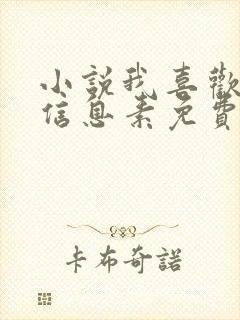 小說我喜歡
信息素免費
卡布奇諾